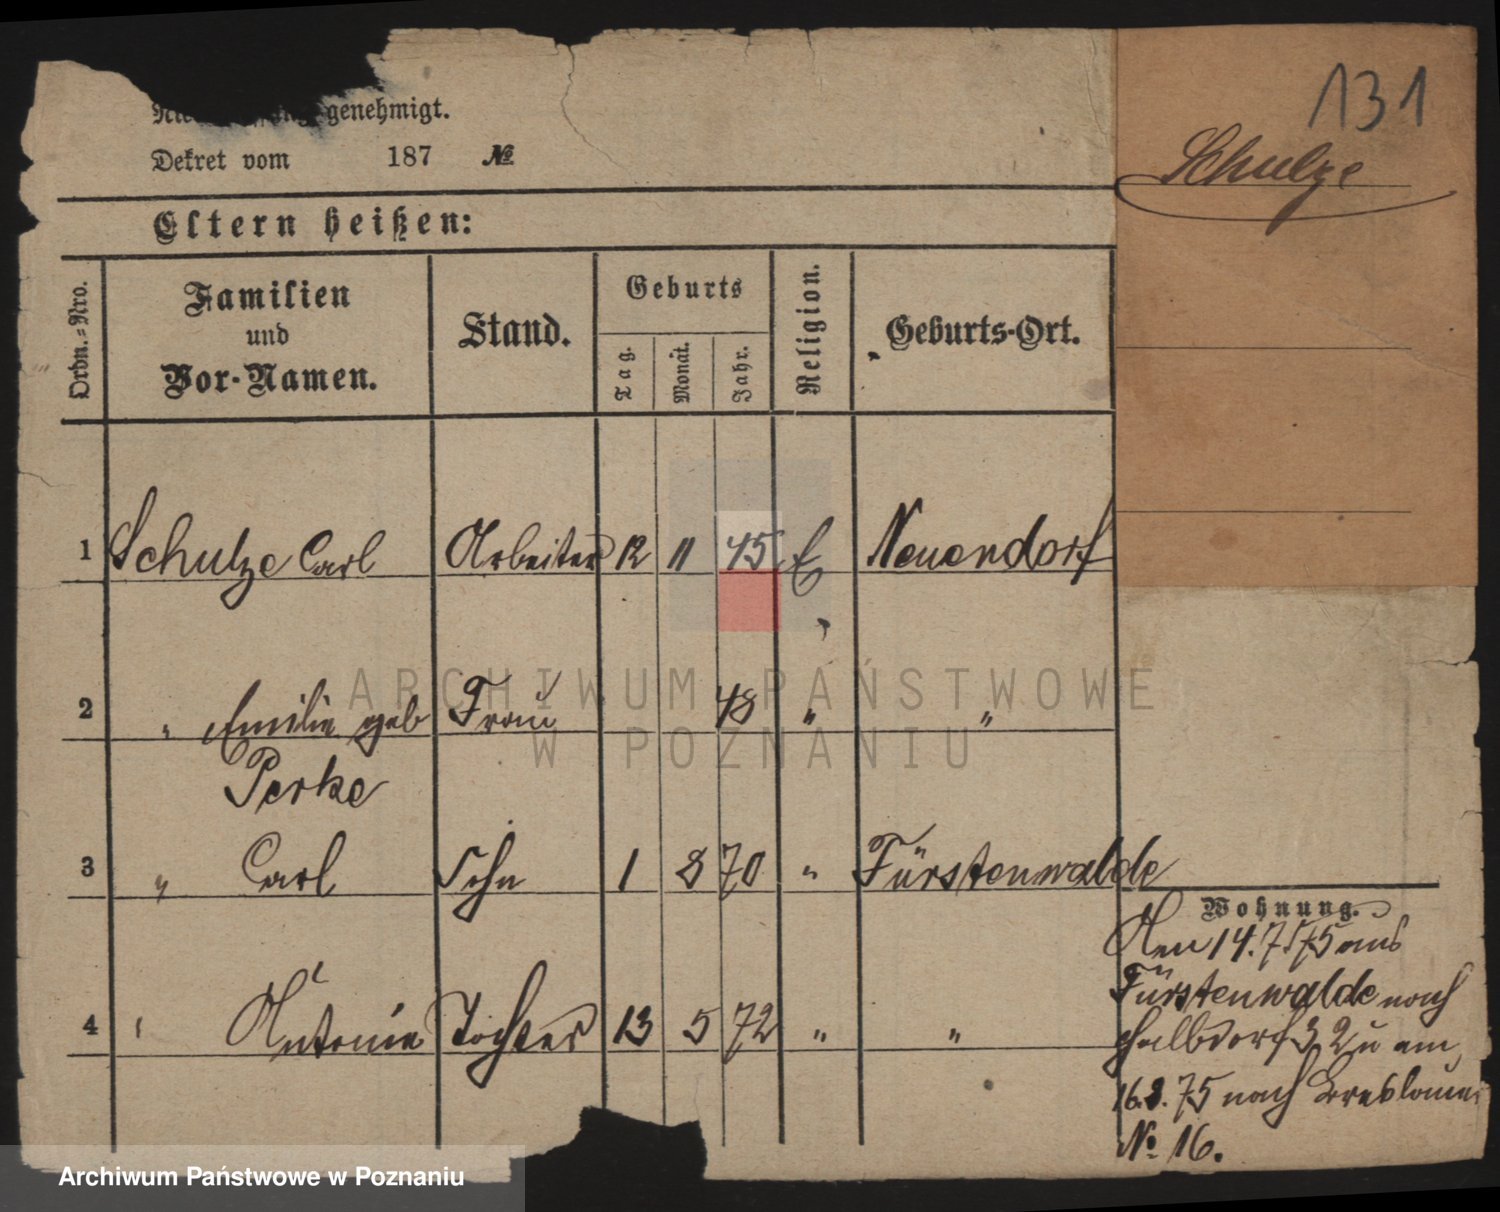 131
Schulze
genehmigt.
Dekret vom 187 №
Eltern heißen:
Ordn.-Nro. Familien und Vor-Namen. Stand. Geburts Tag. Monat. Jahr. Religion. Geburts-Ort.
1 Schulze Carl Arbeiter 12 11 45 E Neuendorf
2 " Emilie geb Frau 48 " "
Perke
3 " Carl Sohn 1 8 70 " Fürstenwalde
4 " Antonie Tochter 13 5 72 " "
Wohnung.
Den 14.7.75 aus
Fürstenwalde nach
32 u am
16.8.75 nach
№ 16.
ARCHIWUM PAŃSTWOWE
W POZNANIU
Archiwum Państwowe w Poznaniu